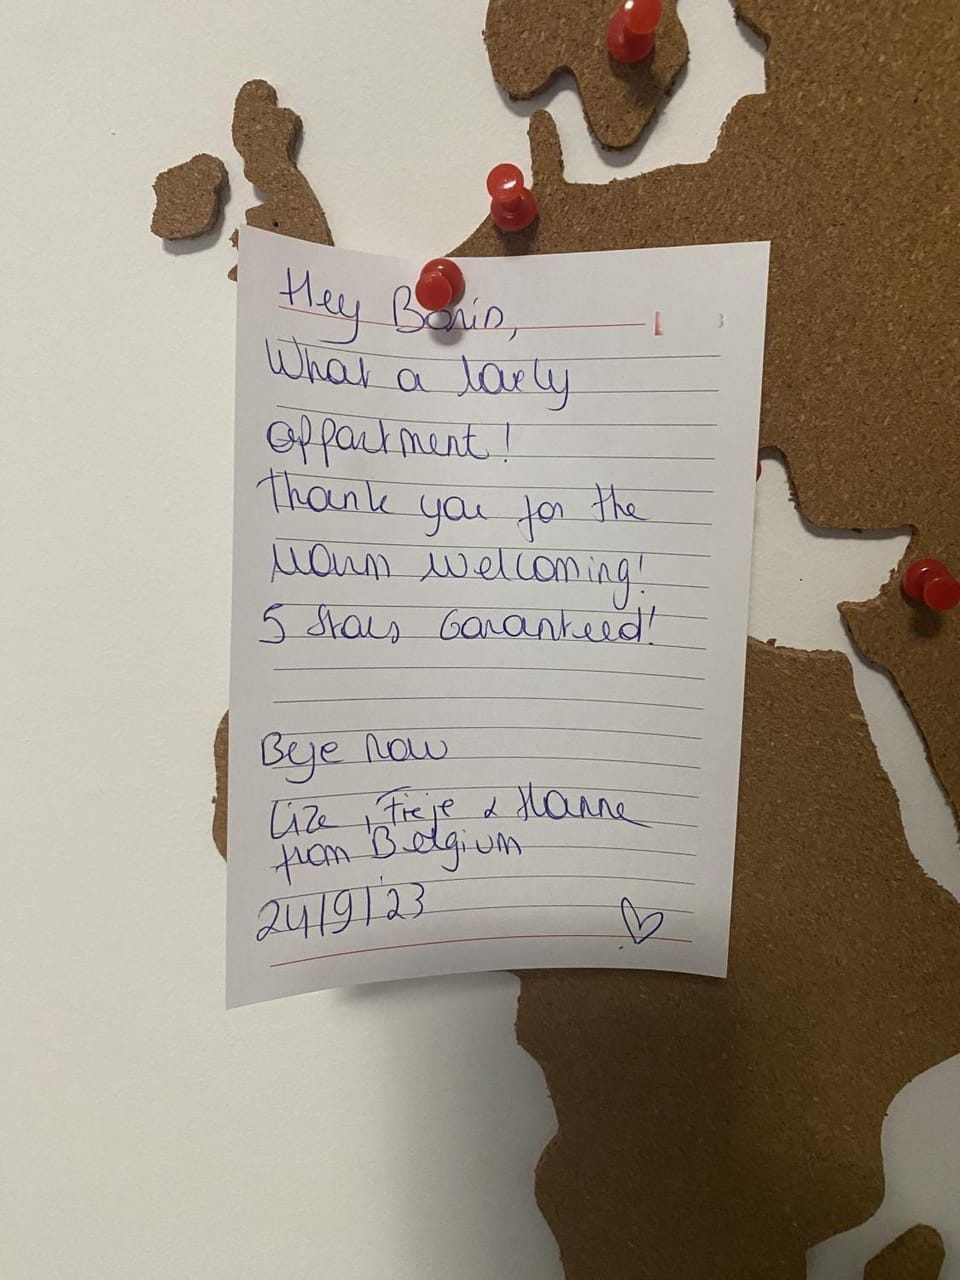 Hey Boris,
What a lovely
appartment!
Thank you for the
warm welcoming!
5 stars Garanteed!
Beye now
Lize, Freje & Hanne
from Belgium
24/9/'23